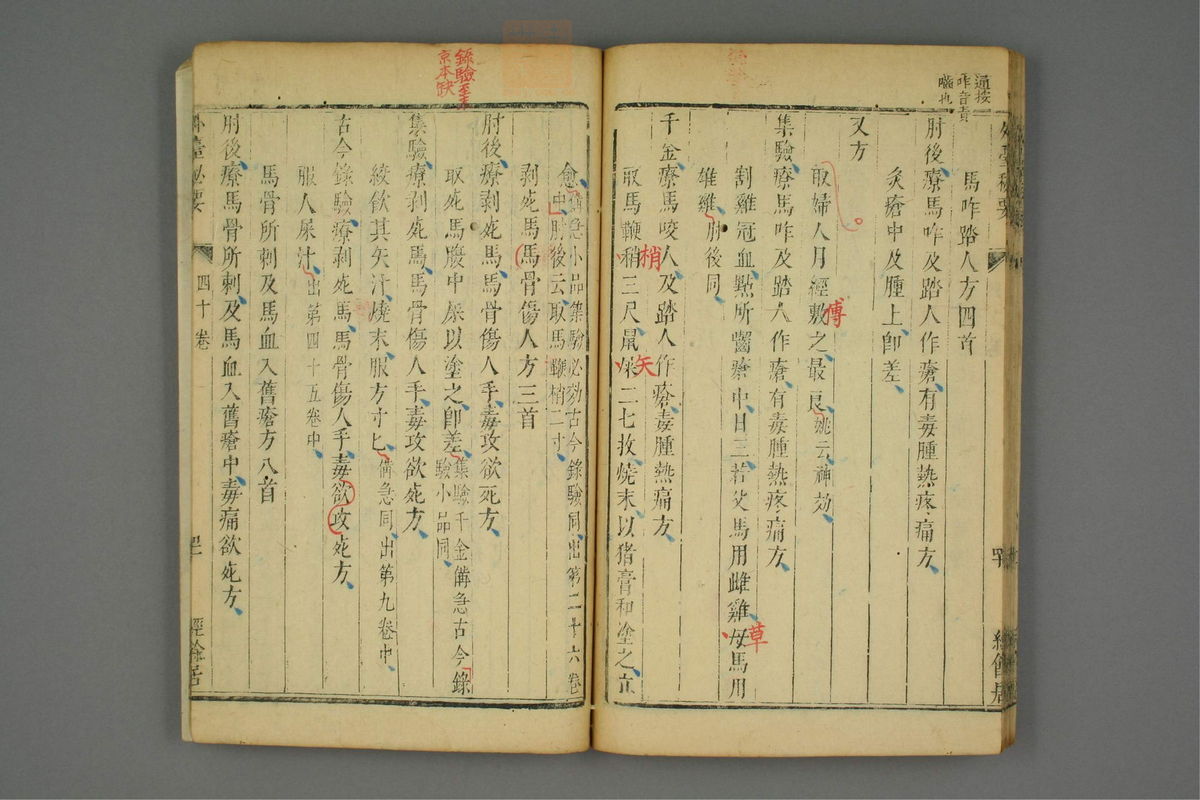 通按
咋音責
嚙也
外臺秘要
馬咋踏人方四首
肘後療馬咋及踏人作瘡有毒腫熱疼痛方
灸瘡中及腫上卽差
又方
取婦人月經敷之最良姚云神効
傅
集驗療馬咋及踏人作瘡有毒腫熱疼痛方
割雞冠血點所齧瘡中日三若父馬用雌雞母馬用
草
雄雞肘後同
千金療馬咬人及踏人作瘡毒腫熱痛方
取馬鞭稍三尺鼠屎二七枚燒末以猪膏和塗之立
梢
矢
愈備急小品集驗必効古今錄驗同出第二十六卷
中肘後云取馬鞭梢二寸
剥死馬馬骨傷人方三首
肘後療剥死馬馬骨傷人手毒攻欲死方
取死馬腹中屎以塗之卽差集驗千金備急古今錄
驗小品同
錄驗至手
京本缺
集驗療剥死馬馬骨傷人手毒攻欲死方
絞飲其矢汁燒末服方寸匕備急同出第九卷中
古今錄驗療剥死馬馬骨傷人手毒欲攻死方
服人屎汁出第四十五卷中
馬骨所刺及馬血入舊瘡方八首
肘後療馬骨所刺及馬血入舊瘡中毒痛欲死方
外臺秘要
四十卷
經餘居